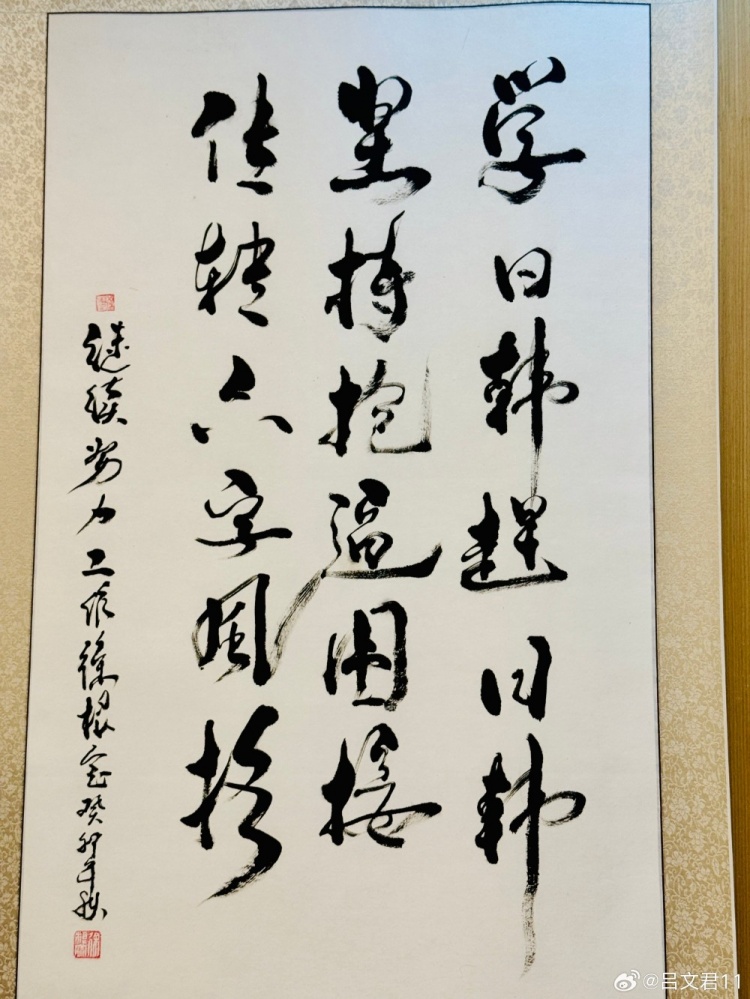 学日韩趕日韩
坚持抢逼围接
传转六字风格
继续努力工作徐根宝癸卯年秋
@吕文君11